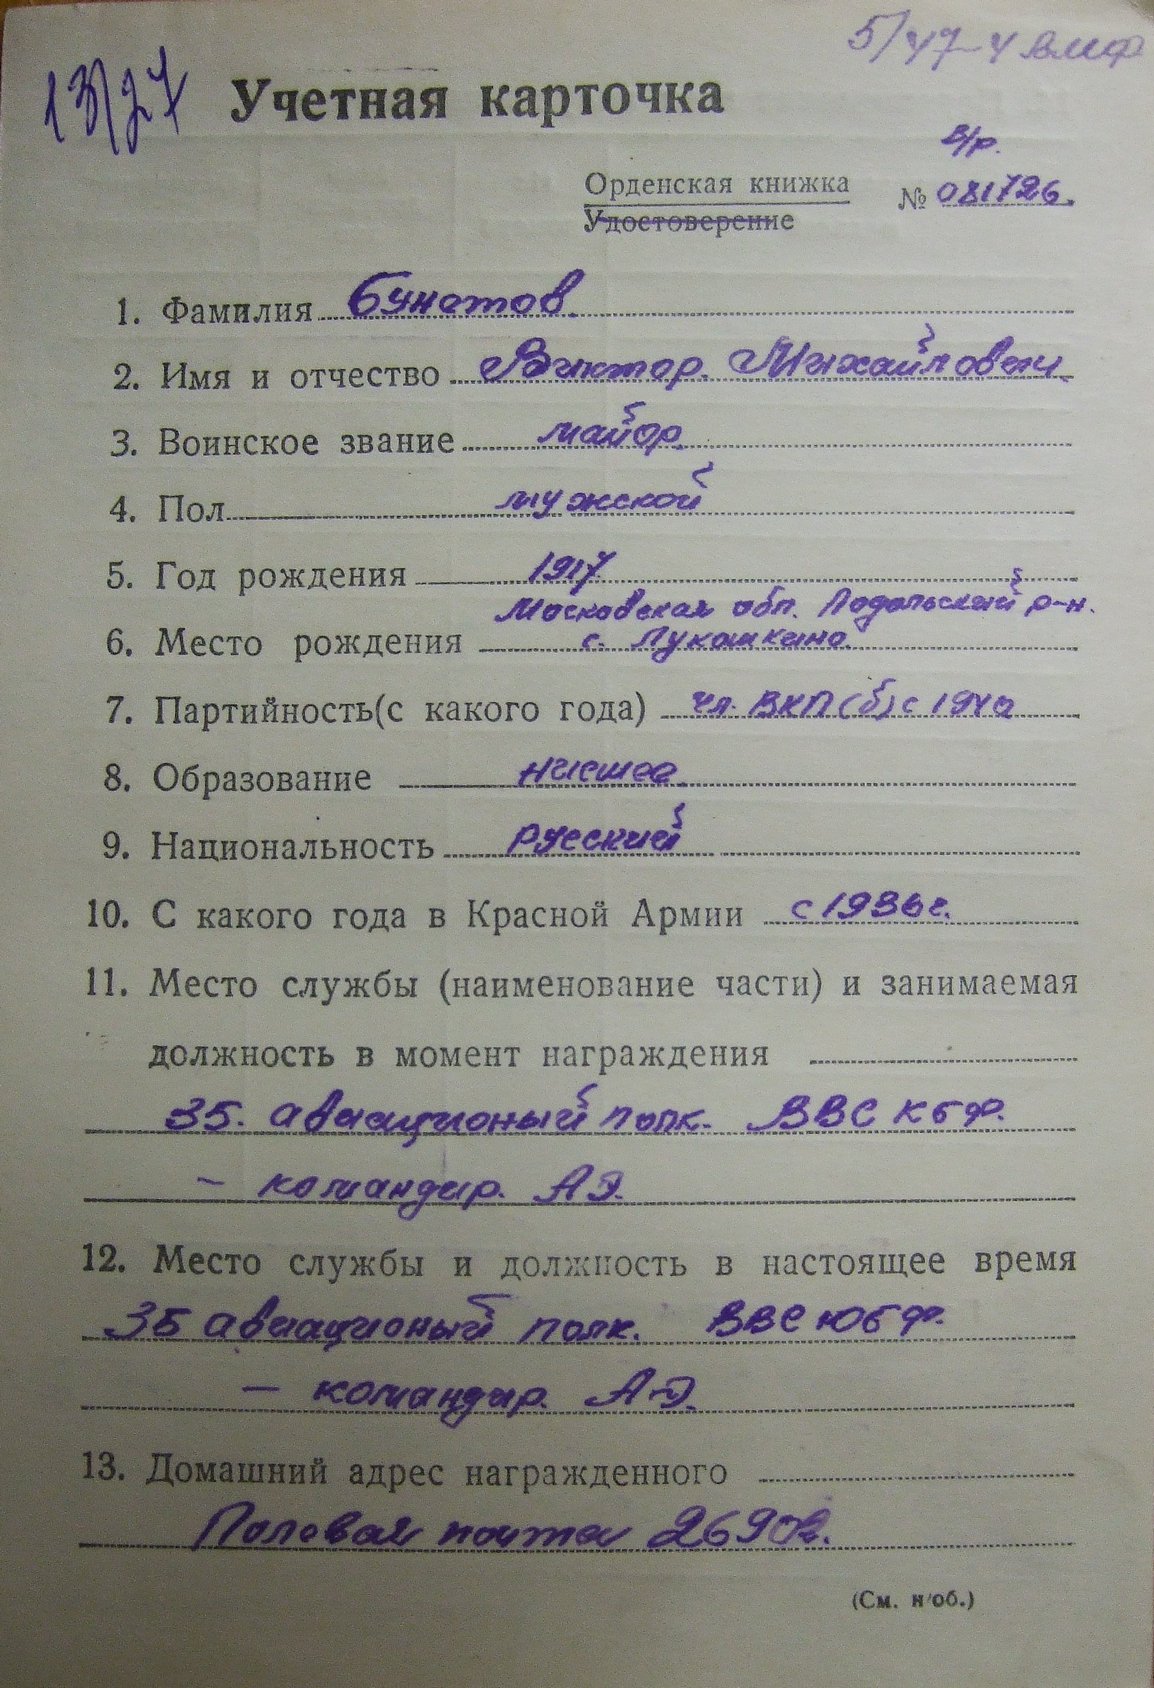 5/47-4 вмф
13/27 Учетная карточка
в/р.
Орденская книжка № 081726.
Удостоверение
1. Фамилия Бунатов.
2. Имя и отчество Виктор. Михайлович.
3. Воинское звание майор.
4. Пол мужской
5. Год рождения 1917
Московская обл. Подольский р-н.
6. Место рождения с. Лукошкино.
7. Партийность(с какого года) чл. ВКП(б) с 1940
8. Образование низшее.
9. Национальность русский
10. С какого года в Красной Армии с 1936 г.
11. Место службы (наименование части) и занимаемая
должность в момент награждения
35. авиационый полк. ВВС КБФ.
— командир. АЭ.
12. Место службы и должность в настоящее время
35 авиационый полк. ВВС ЮБФ.
— командир. АЭ.
13. Домашний адрес награжденного
Полевая почта 26902.
(См. н/об.)